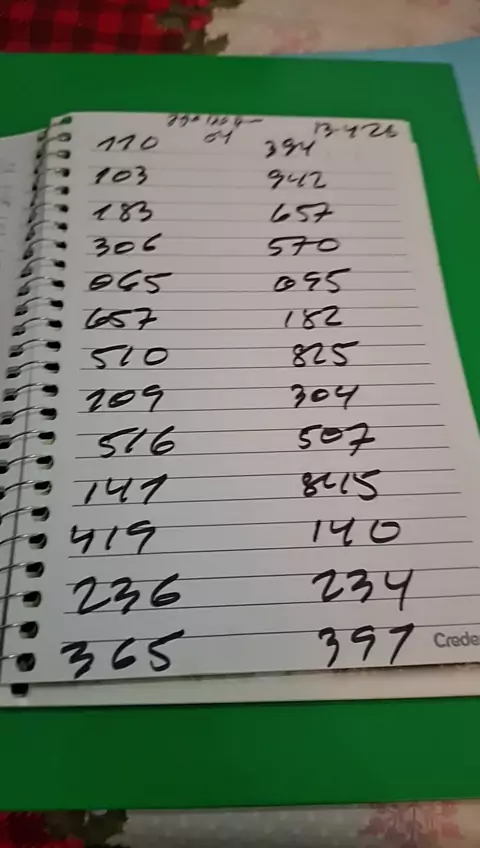 04 13-4-26
110 394
103 942
183 657
306 570
065 095
657 182
510 825
109 304
516 507
141 8415
419 140
236 234
365 397
Crede